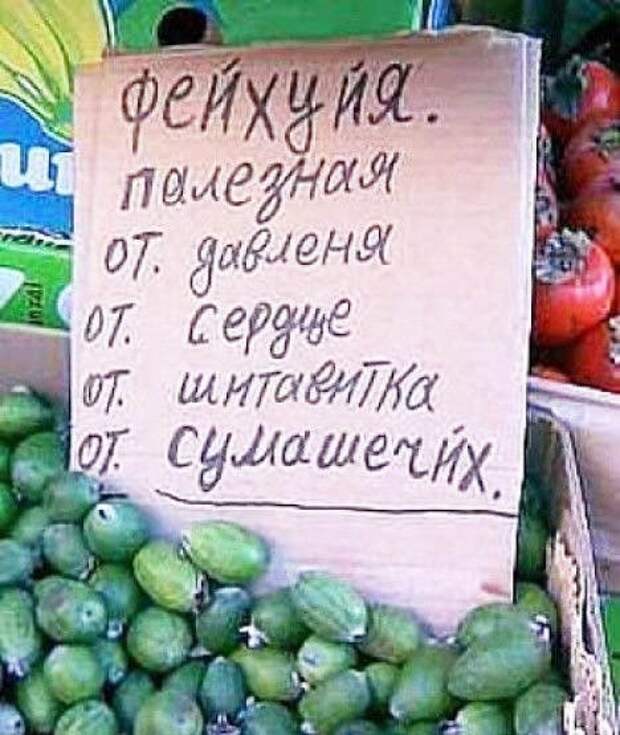 ФЕЙХУЙЯ.
палезная
от. давленя
от. Сердце
от. шитавитка
от. Сумашечйх.